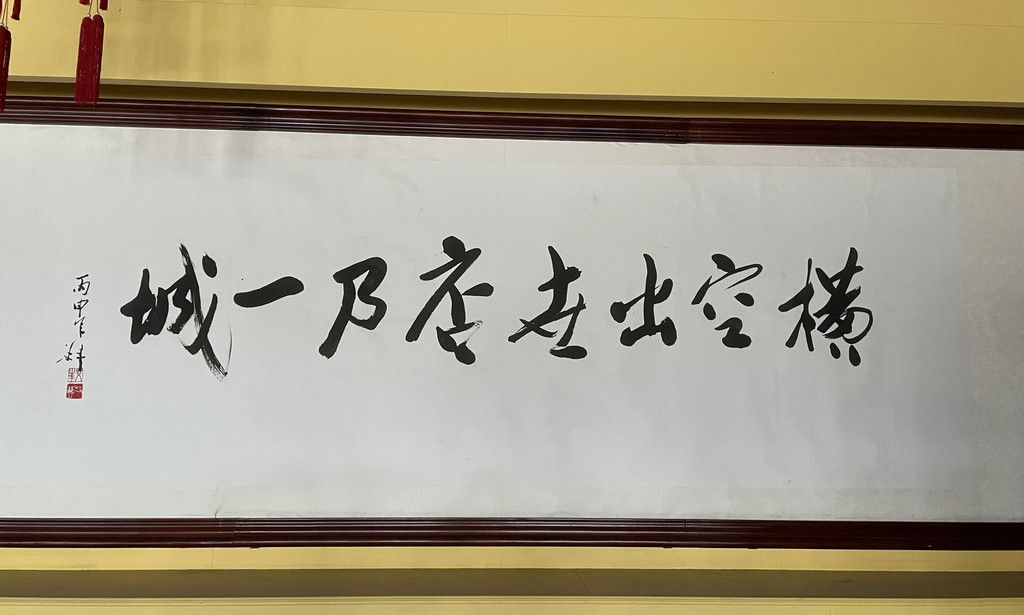 横空出世店乃一城
丙申年